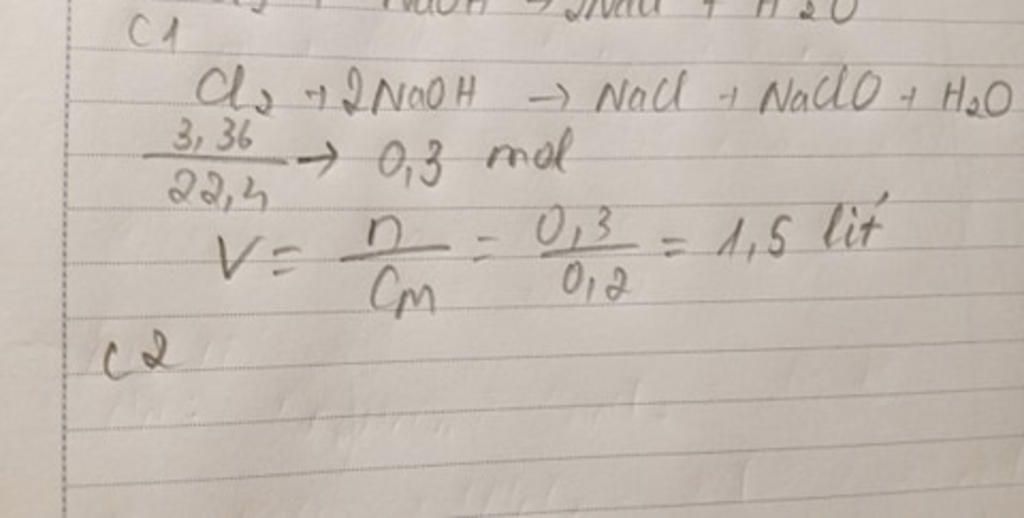 NaOH → 2NaCl + H2O
C1
Cl2 + 2NaOH → NaCl + NaClO + H2O
3,36 / 22,4 → 0,3 mol
V = n / CM = 0,3 / 0,2 = 1,5 lít
C2